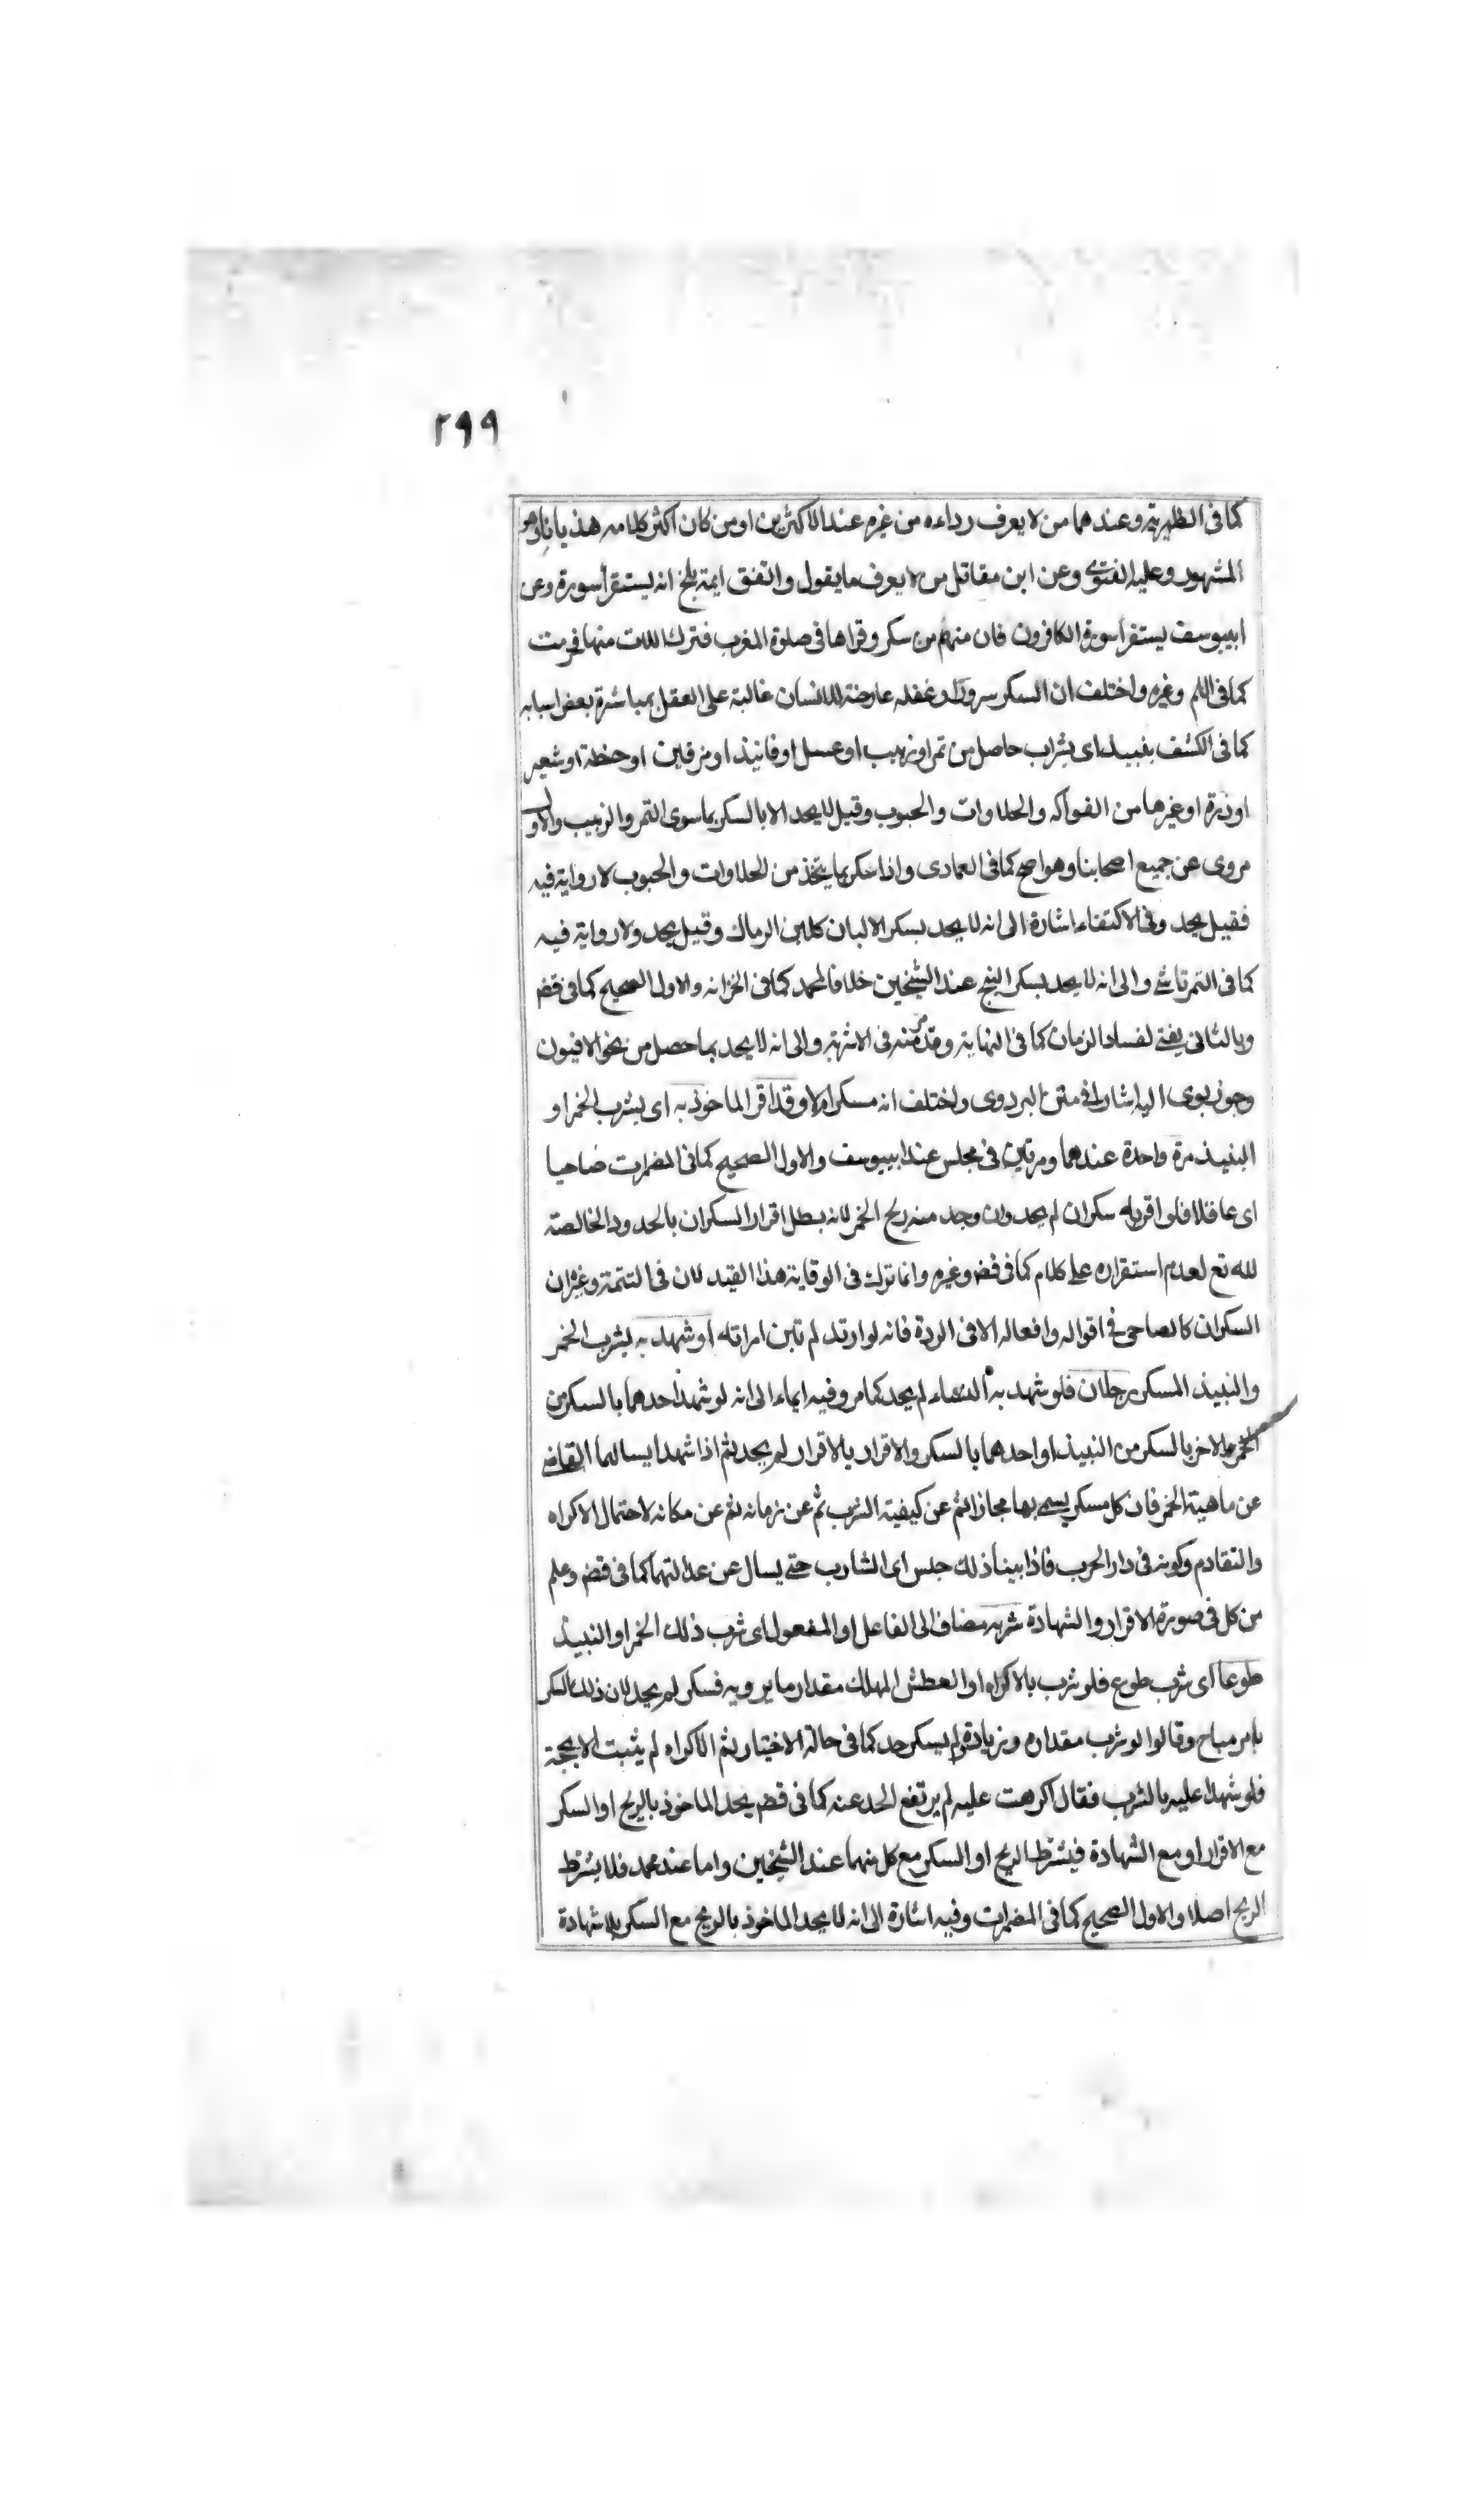 ٢٩٩
كما فى الظهيرية وعندهما من لا يعرف رداءه من غيره عند الاكثرين او من كان اكثر كلامه هذيانا وهو
المشهور وعليه الفتوى وعن ابن مقاتل من لا يعرف ما يقول واتفق ايمة بلخ انه يستقرأ سورة وعن
ابيوسف يستقرأ سورة الكافرون فان منهم من سكر وقراها فى صلوة المغرب فترك اللات منها فحرمت
كما فى وغيره واختلف ان السكر سرور او غفله عارضة للانسان غالبة على العقل بمباشرة بعض اسبابه
كما فى الكشف بنبيذ اى بشراب حاصل من تمر او زبيب او عسل او فانيذ او مرقين او حنطة او شعير
او ذرة او غيرها من الفواكه والحلاوات والحبوب وقيل لا يحد الا بالسكر بما سوى التمر والزبيب والاول
مروى عن جميع اصحابنا وهو اصح كما فى العمادى واذا سكر بما يتخذ من الحلاوات والحبوب لا رواية فيه
فقيل يحد وفى الاكتفاء اشارة الى انه لا يحد بسكر الالبان كلبن الرماك وقيل يحد ولا رواية فيه
كما فى التمرتاشى والى انه لا يحد بسكر البنج عند الشيخين خلافا لمحمد كما فى الخزانه والاول الصحيح كما فى قض
وبالثانى يفتى لفساد الزمان كما فى النهاية وقد مر منه فى الاشربة والى انه لا يحد بما حصل من نحو الافيون
وجوز بوى اليه اشار فى متن البزدوى واختلف انه مسكر ام لا وقد اقر الماخوذ به اى بشرب الخمر او
النبيذ مرة واحدة عندهما ومرتين فى مجلس عند ابييوسف والاول الصحيح كما فى المضمرات صاحيا
اى عاقلا فلو اقر به سكران لم يحد وان وجد منه ريح الخمر لانه بطل اقرار السكران بالحدود الخالصة
لله تع لعدم استقراره على كلام كما فى قض وغيره وانما ترك فى الوقاية هذا القيد لان فى التتمة وغيره ان
السكران كالصاحى فى اقواله وافعاله الا فى الردة فانه لو ارتد لم تبن امراته او شهد به بشرب الخمر
والنبيذ المسكر رجلان فلو شهد به النساء لم يحد كما مر وفيه ايماء الى انه لو شهد احدهما بالسكر من
الخمر والاخر بالسكر من النبيذ او احدهما بالسكر والاقرار بالاقرار لم يحد ثم اذا شهدا يسالهما القاضى
عن ماهية الخمر فان كل مسكر يسمى بها مجازا ثم عن كيفية الشرب ثم عن زمانه ثم عن مكانه لاحتمال الاكراه
والتقادم وكونه فى دار الحرب فاذا بينا ذلك حبس اى الشارب حتى يسال عن عدالتهما كما فى قض وعلم
من كل فى صورة الاقرار والشهادة شربه مضاف الى الفاعل او المفعول اى شرب ذلك الخمر او النبيذ
طوعا اى شرب طوع فلو شرب بالاكراه او العطش المهلك مقدار ما يرويه فسكر لم يحد لان ذلك السكر
بامر مباح وقالوا لو شرب مقداره وزيادة ولم يسكر حد كما فى حالة الاختيار ثم الاكراه لم يثبت الا بحجة
فلو شهدا عليه بالشرب فقال اكرهت عليه لم يرتفع الحد عنه كما فى قض يحد الماخوذ بالريح او السكر
مع الاقرار او مع الشهادة فيشترط الريح او السكر مع كل منهما عند الشيخين واما عند محمد فلا يشترط
الريح اصلا والاول الصحيح كما فى المضمرات وفيه اشارة الى انه لا يحد الماخوذ بالريح مع السكر بلا شهادة